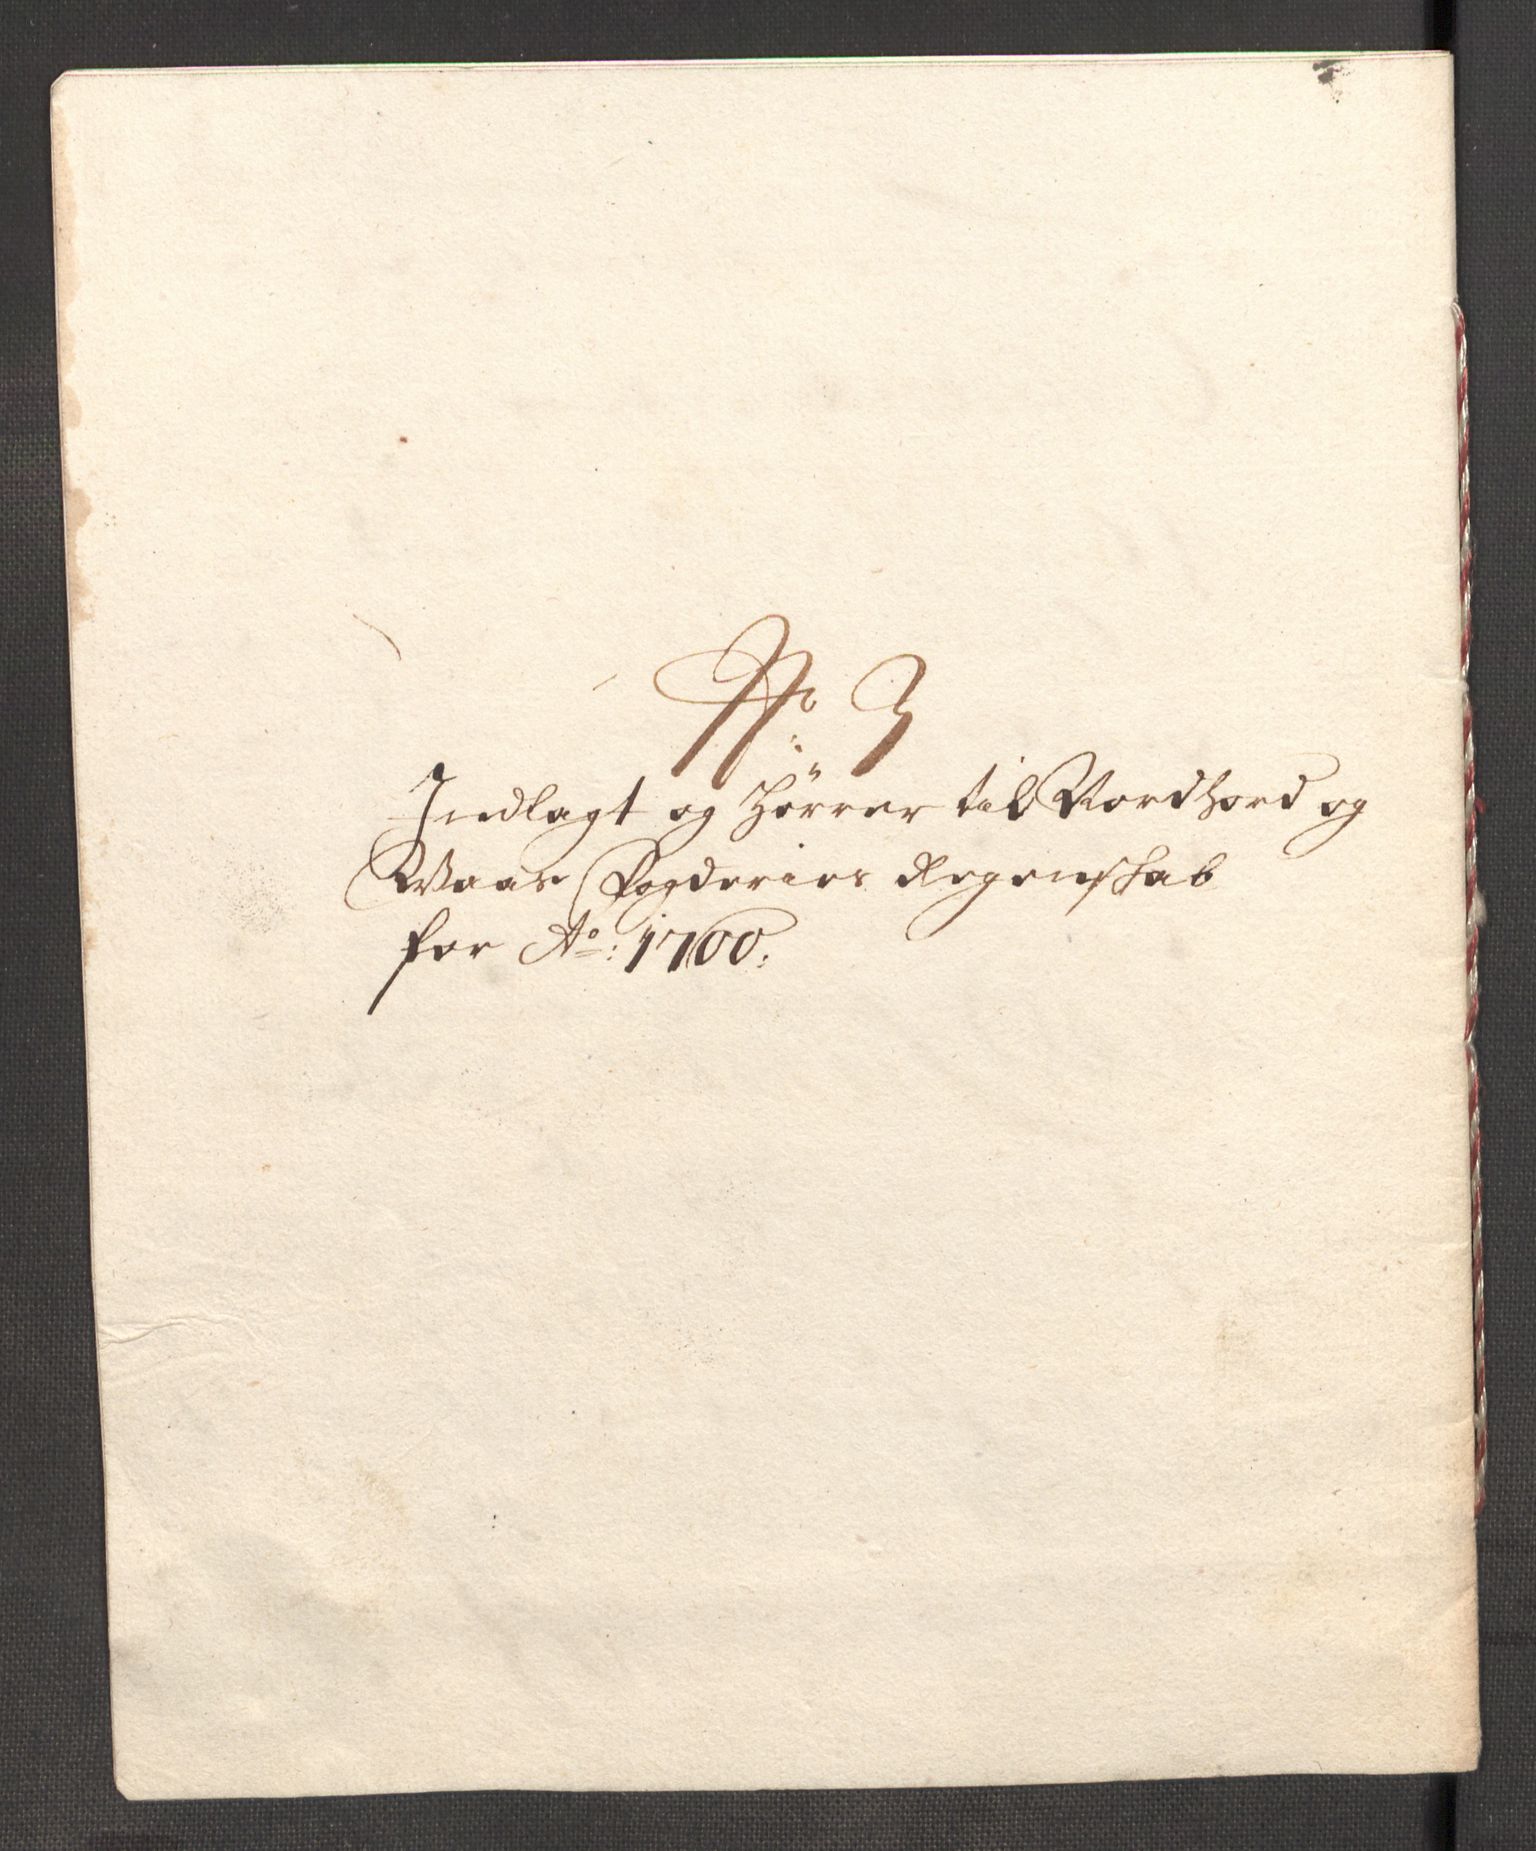 No. 3
Indlagt og hörrer til Nordhord og
Waas Fogderies Regenschab
for Ao: 1700: